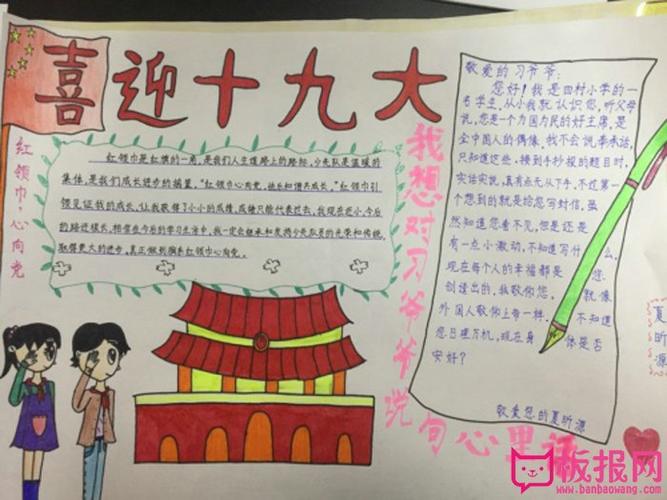 喜迎十九大
红领巾·心向党
红领巾是红旗的一角,是我们人生道路上的路标,少先队是温暖的
集体,是我们成长进步的摇篮,"红领巾心向党,
红领巾引
领见证我的成长,让我取得了小小的成绩,成绩只能代表过去,我现在还小,今后
的路还很长,相信在今后的学习生活中,我一定会继承和发扬少先队员的光荣和传统,
取得更大的进步,真正做到胸系红领巾心向党。
我想对习爷爷说句心里话
敬爱的习爷爷:
您好!我是田村小学的一
名学生,从小我就认识您,听父母
说,您是个为国为民的好主席,是
全中国人的偶像,我不会说奉承话,
只知道这些,接到手抄报的题目时,
实话实说,真有点无从下手,不过第一
个想到的就是给您写封信,虽
然知道您看不见,但是还是
有一点小激动,不知道写什么,
现在每个人的幸福都是您
创造出的,我敬仰您,就像
外国人敬仰上帝一样,不知道
您日理万机,现在身体是否
安好?
敬爱您的夏昕源
夏
昕
源
板报网
www.banbaowang.com